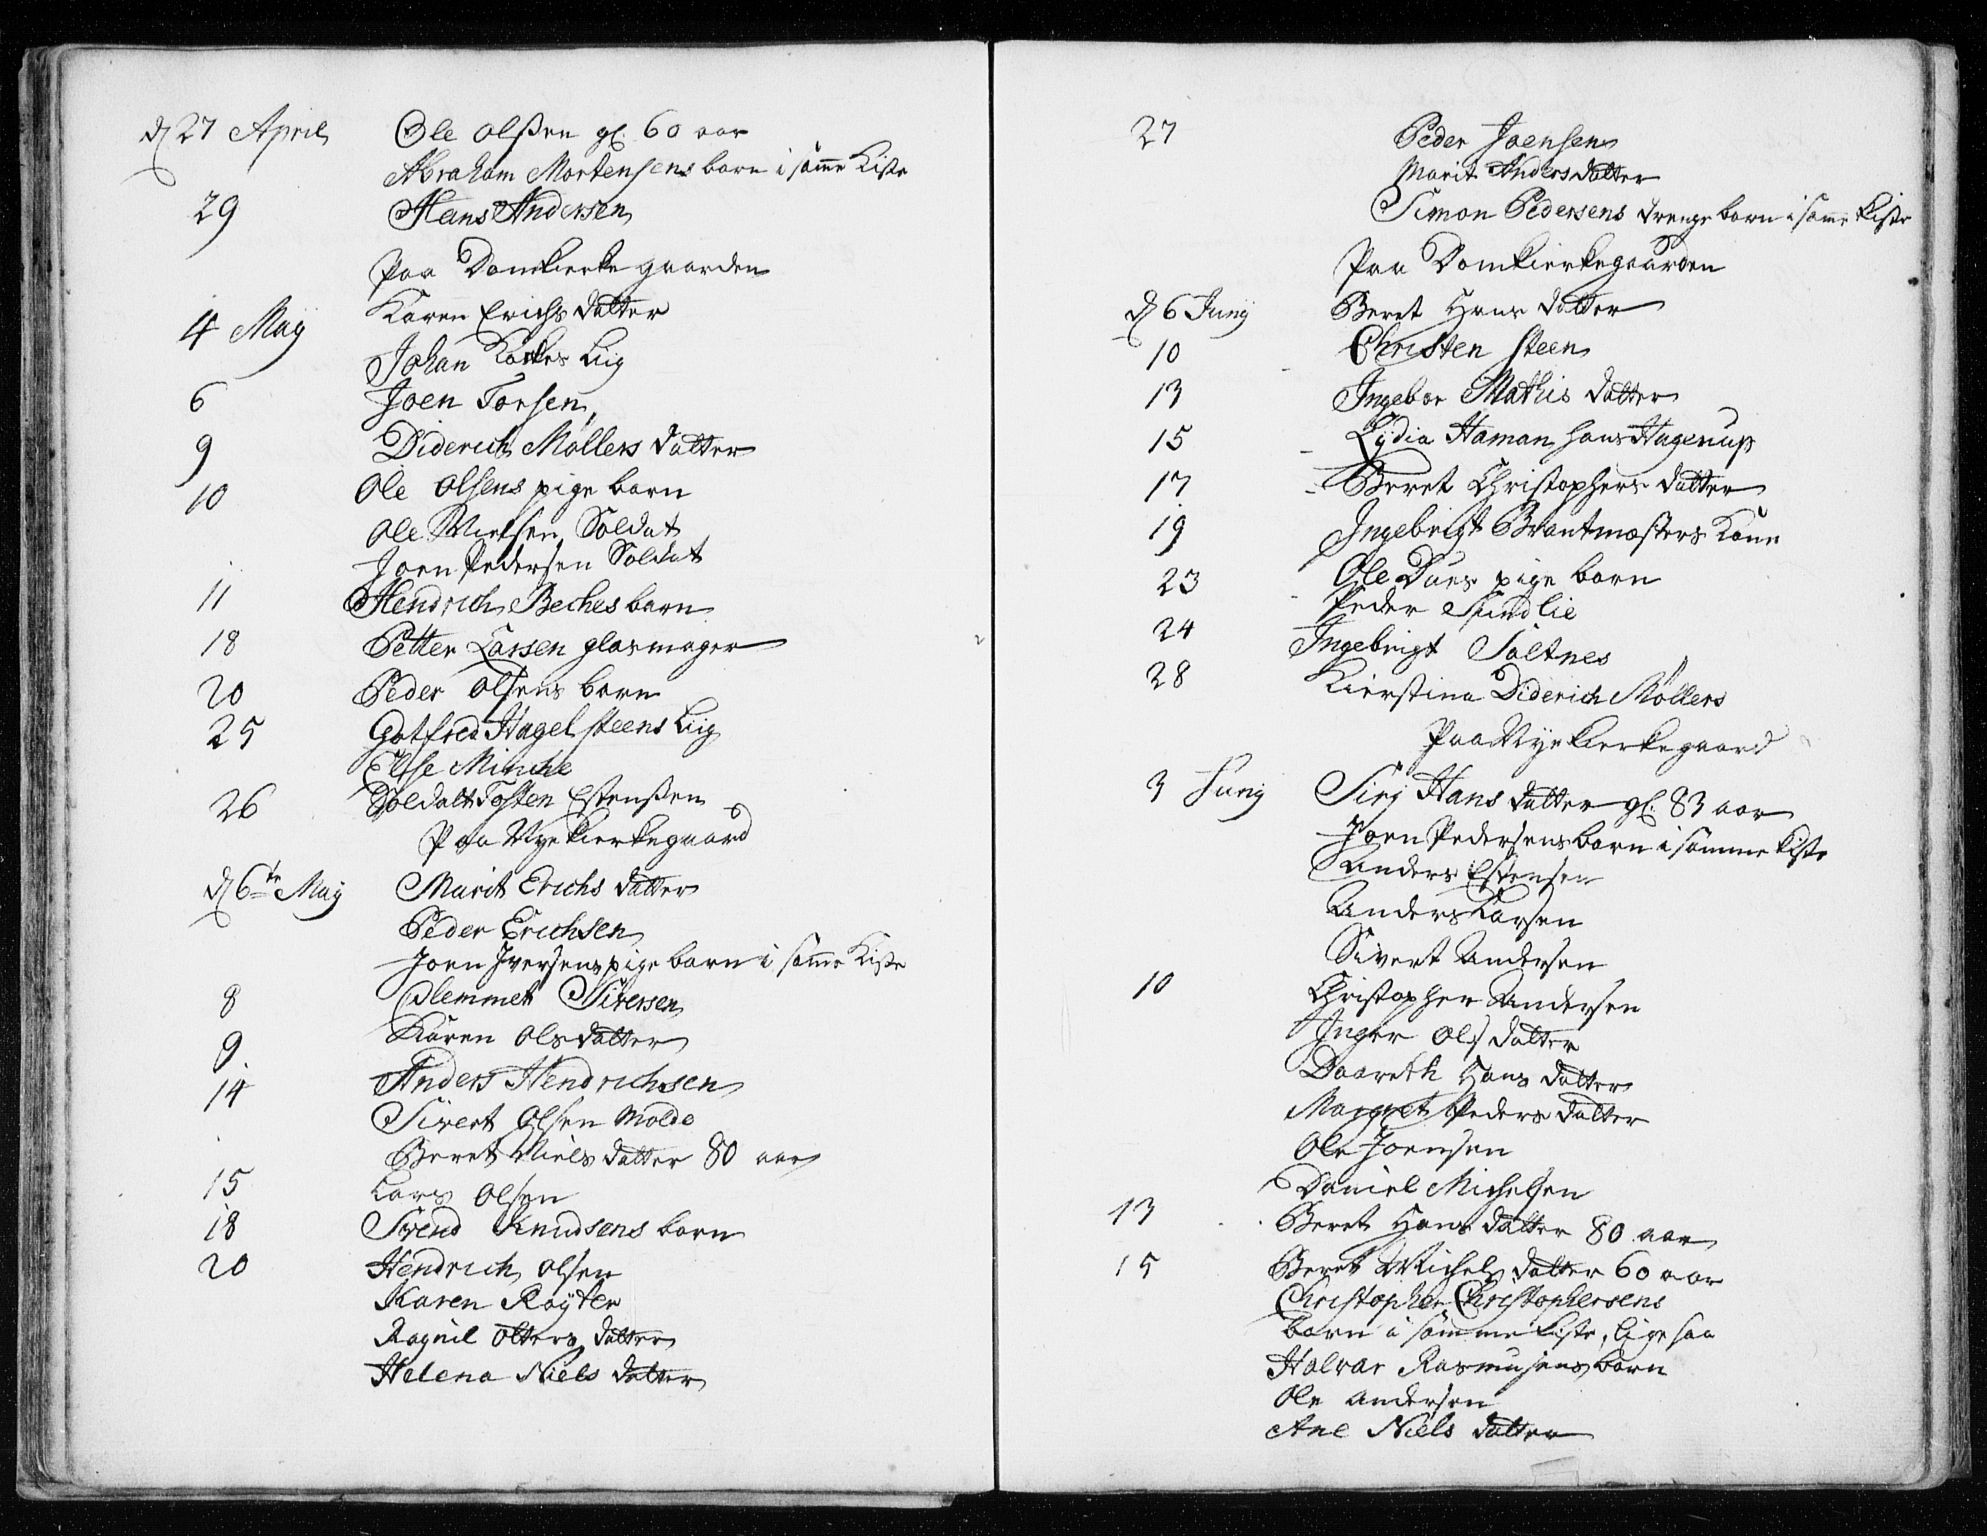 d 27 April Ole Olssen gl. 60 aar
Abraham Mortensens barn i samme Kiste
29 Hans Andersen
Paa Domkierke gaarden
4 May Karen Erichs datter
Johan Liig
6 Joen Torsen
9 Diderich Møllers datter
10 Ole Olsens pige barn
Ole Nielsen Soldat
Joen Pedersen Soldat
11 Hendrich Beches barn
18 Petter Larsen glasmager
20 Peder Olsens barn
25 Gotfred Hagelsteens Liig
Else Minche
26 Soldat Tosten Estenssen
Paa Nye Kierkegaard
d 6te May Marit Erichs datter
Peder Erichsen
Joen Iversens pige barn i samme Kiste
8 Clemmet Siversen
9. Karen Ols datter
14 Anders Hendrichsen
Sivert Olsen Molde
Beret Niels datter 80 aar
15 Lars Olsen
18 Svend Knudsens barn
20 Hendrich Olsen
Karen Røyter
Ragnil Olters datter
Helena Niels datter
27 Peder Joensen
Marit Anders datter
Simon Pedersens drenge barn i samme Kiste
Paa Domkierkegaarden
d 6 Juny Beret Hans datter
10 Christen Steen
13 Ingebor Mathis datter
15 Lydia Haman Hans Hagerup
17 Beret Christophers datter
19 Ingebrigt Brantmesters Kone
23 Ole Dues pige barn
Peder Sundlie
24 Ingebrigt Saltnes
28 Kierstina Diderich Møllers
Paa Nye Kierkegaard
3 Juny Siri Hans datter gl. 83 aar
Joen Pedersens barn i samme Kiste
Anders Estensen
Anders Larsen
Sivert Andersen
10 Christopher Andersen
Inger Ols datter
Daareth Hans datter
Margret Peders datter
Ole Joensen
Daniel Michelsen
13 Beret Hans datter 80 aar
15 Beret Michels datter 60 aar
Christopher Christophersens
barn i samme Kiste, lige saa
Halvar Rasmusens barn
Ole Andersen
Ane Niels datter